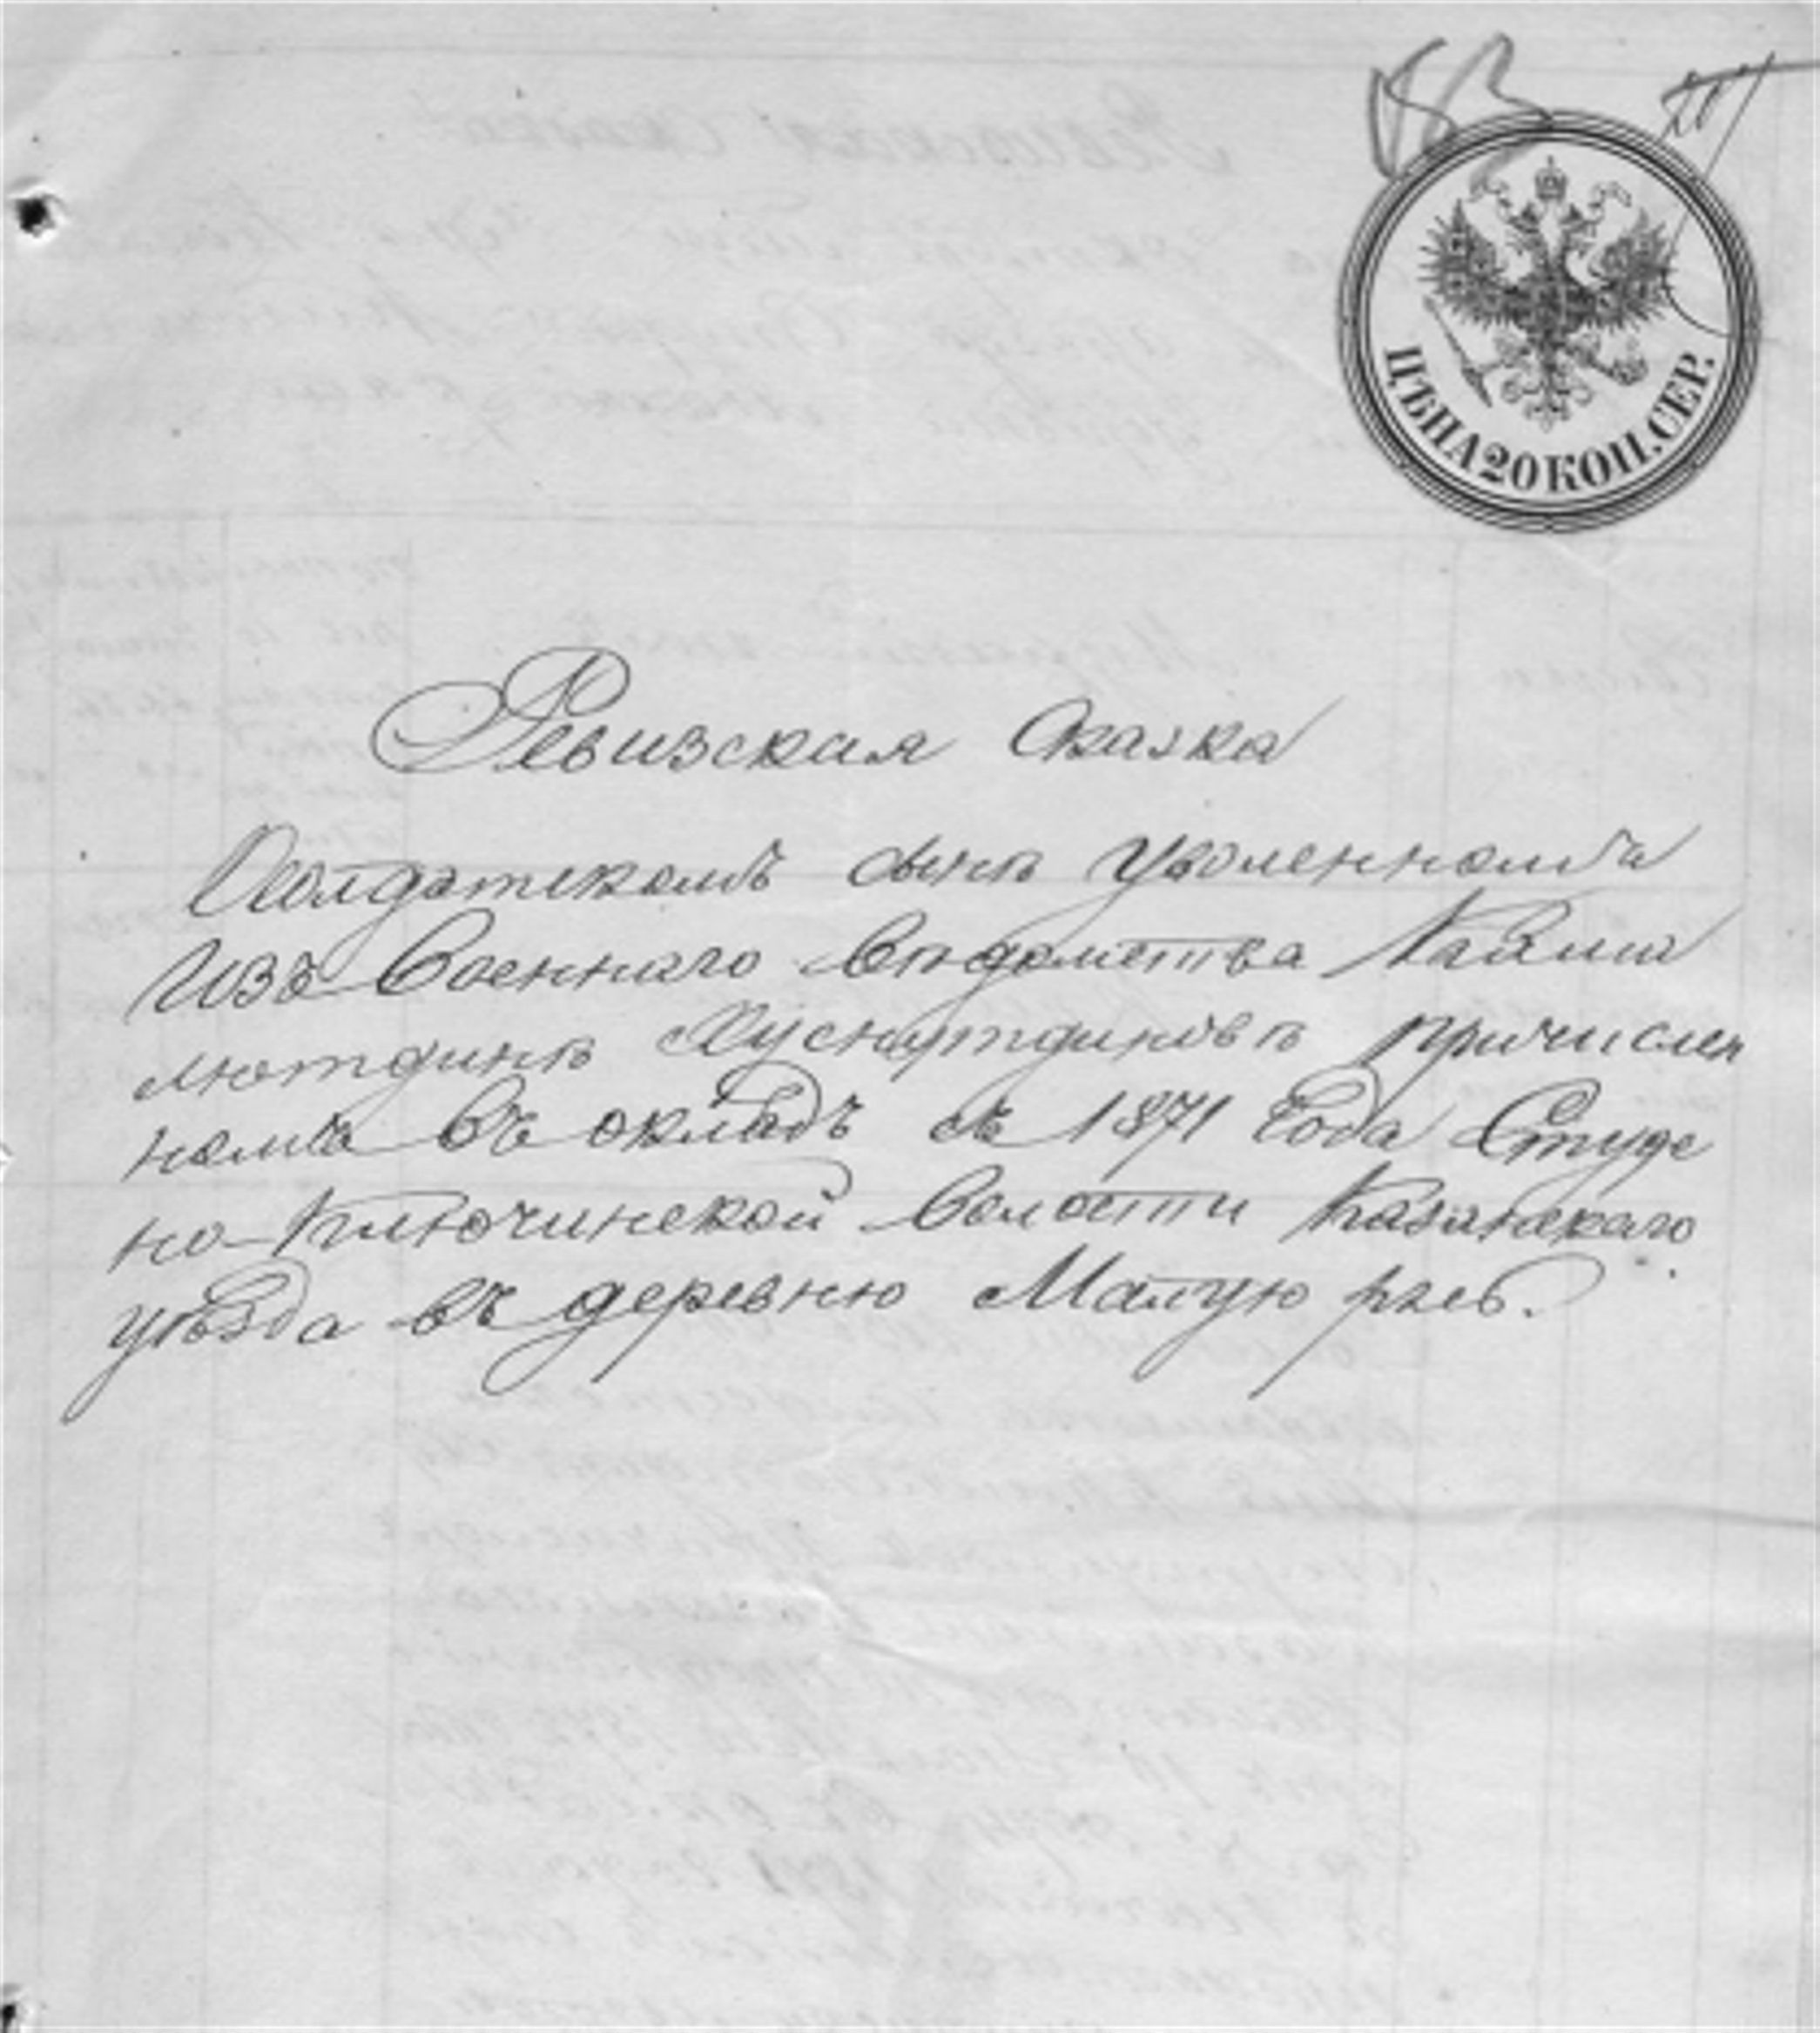 ЦѢНА 20 КОП. СЕР.
Ревизская Сказка
Солдатскомъ сынѣ Уволенномъ
Изъ Военнаго Вѣдомства
лютдинѣ Хуснутдиновѣ причислен
номъ въ окладъ съ 1871 Года Студе
но-Ключинской Волости Казанскаго
уѣзда въ деревню Малую